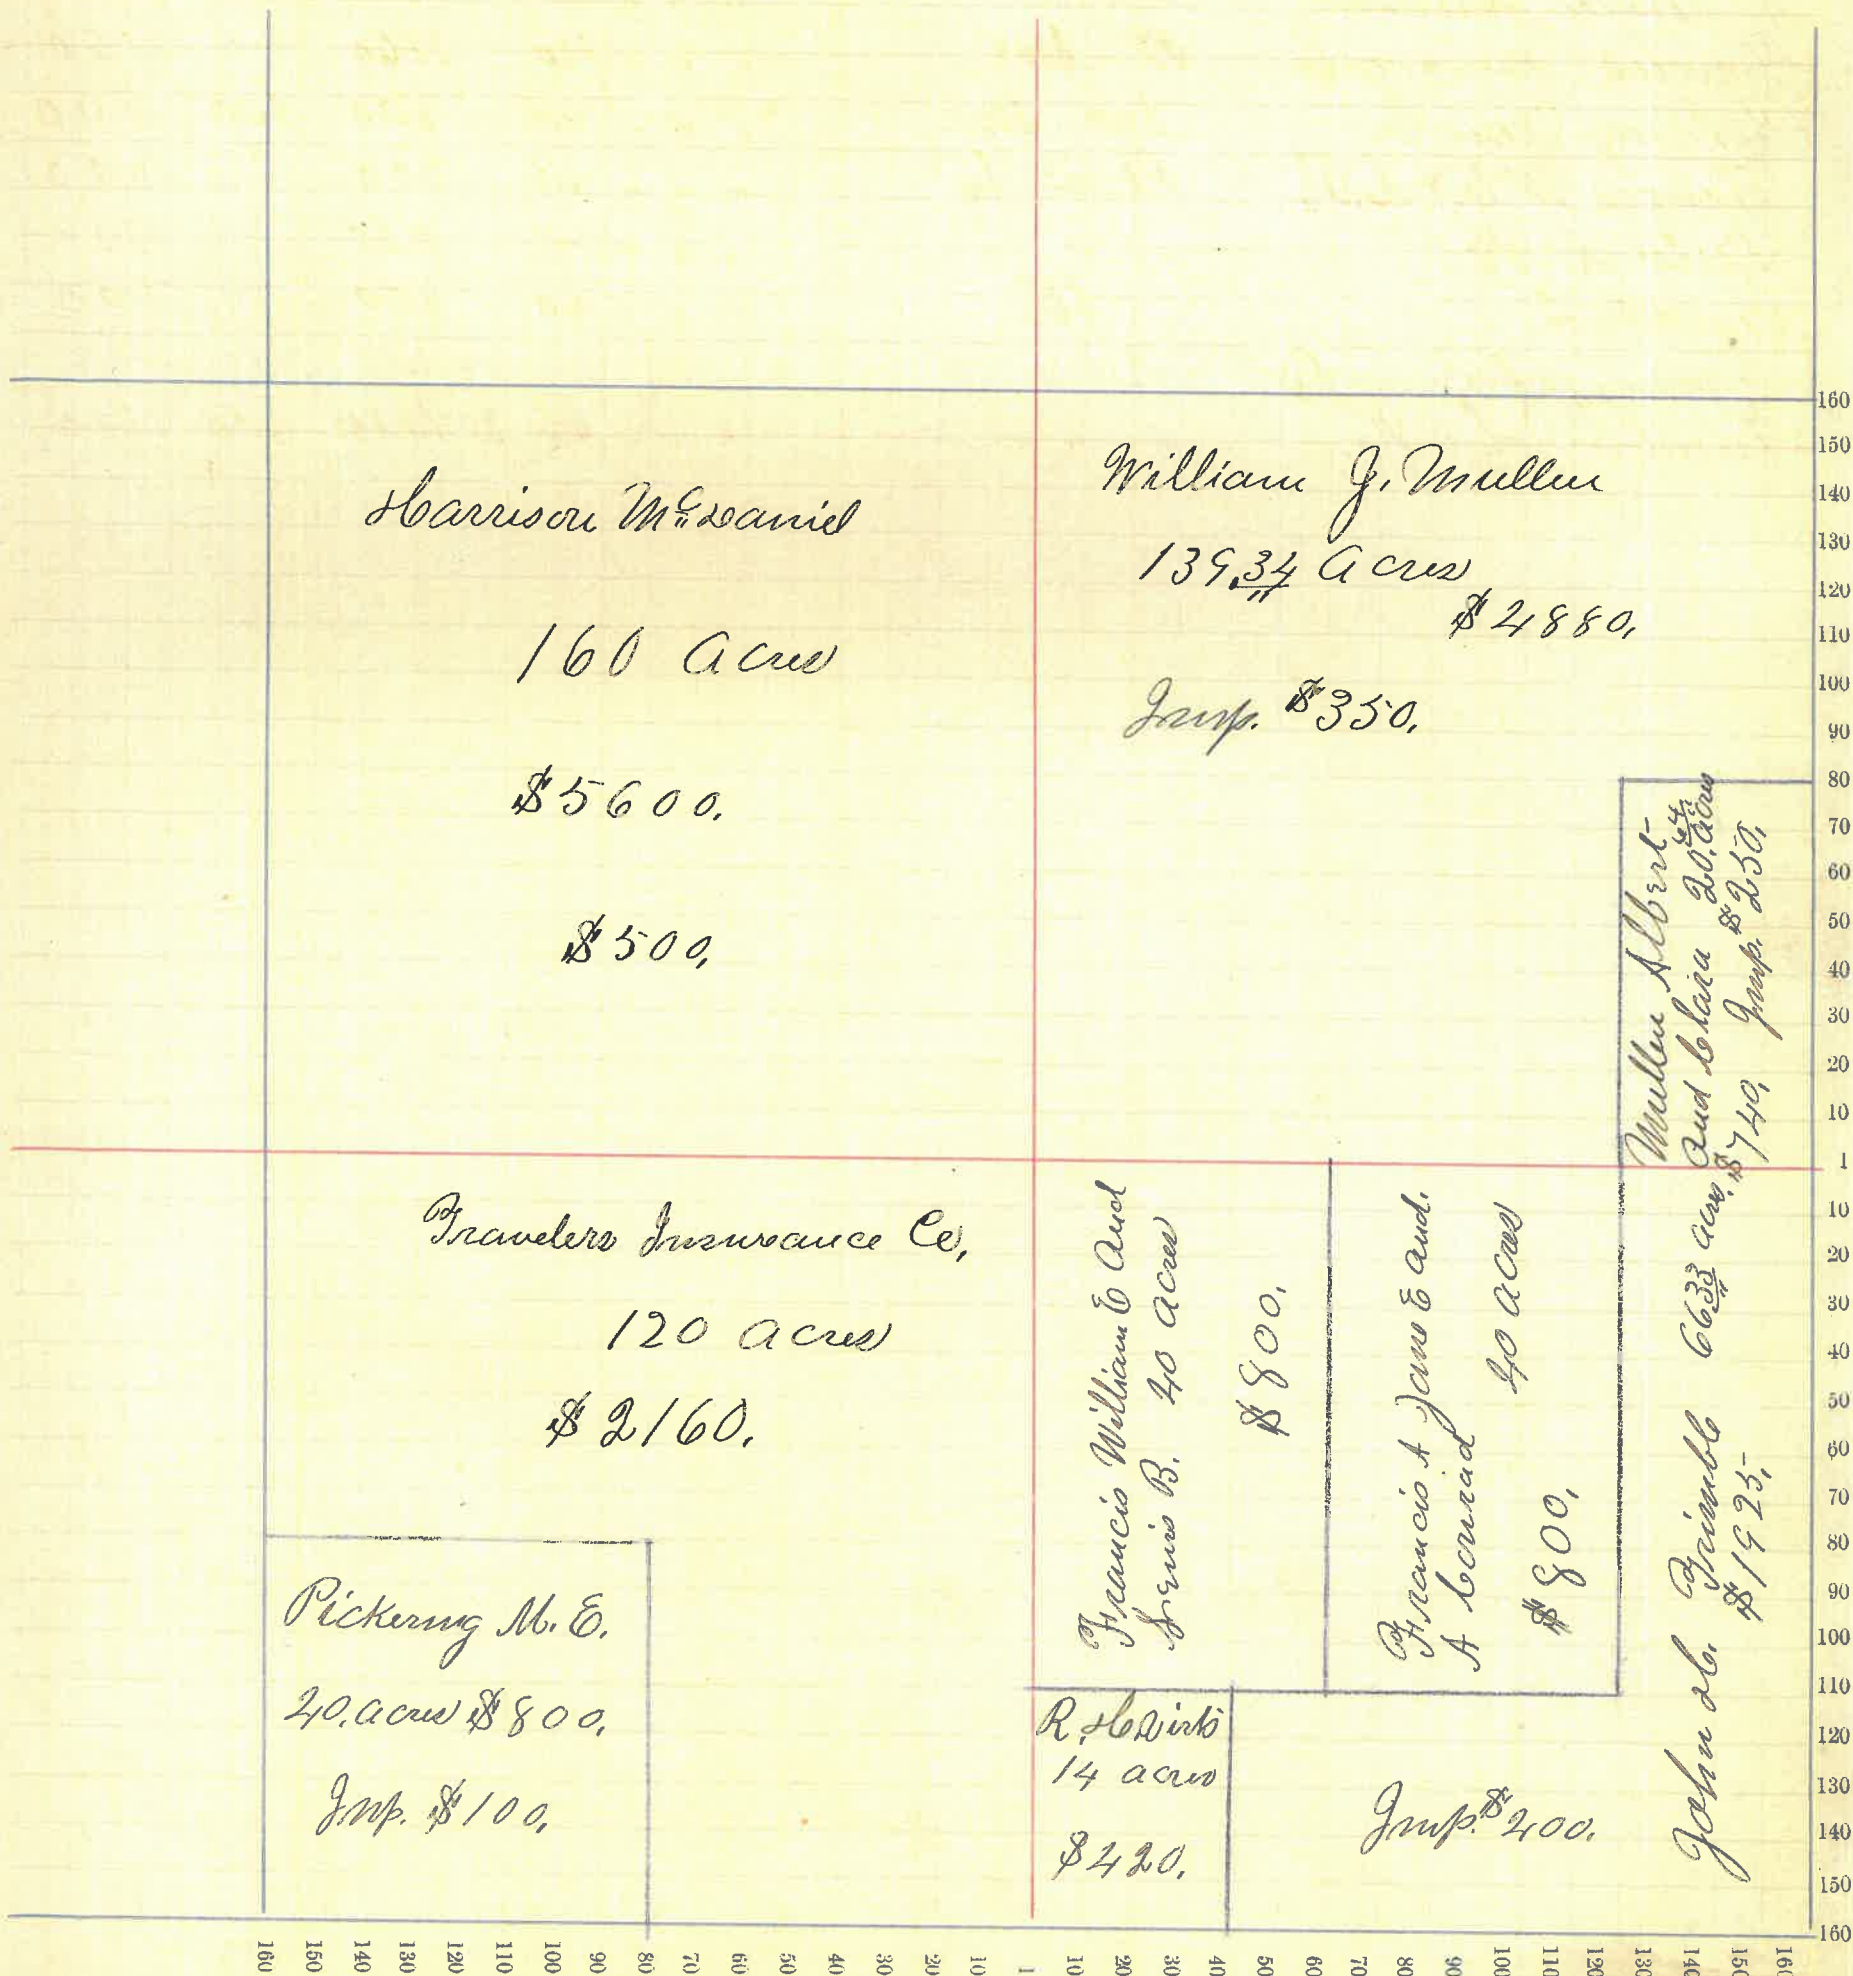 Harrison McDaniel
160 Acres
$5600.
$500,
William J. Mullen
139.34 Acres
$4880,
Imp. $350.
Mullen Albert
and Clara 20.64 acres
$740, Imp. $250,
Travelers Insurance Co,
120 acres
$2160.
Francis William E And
B. 40 acres
$800.
Francis A Jane E and.
A Conrad 40 acres
$800,
John H. Trimble 66 33 acres,
$1925,
Imp. $400.
Pickering M. E.
40. acres $800,
Imp. $100,
R.
14 acres
$420.
160
150
140
130
120
110
100
90
80
70
60
50
40
30
20
10
1
10
20
30
40
50
60
70
80
90
100
110
120
130
140
150
160
160 150 140 130 120 110 100 90 80 70 60 50 40 30 20 10 1 10 20 30 40 50 60 70 80 90 100 110 120 130 140 150 160